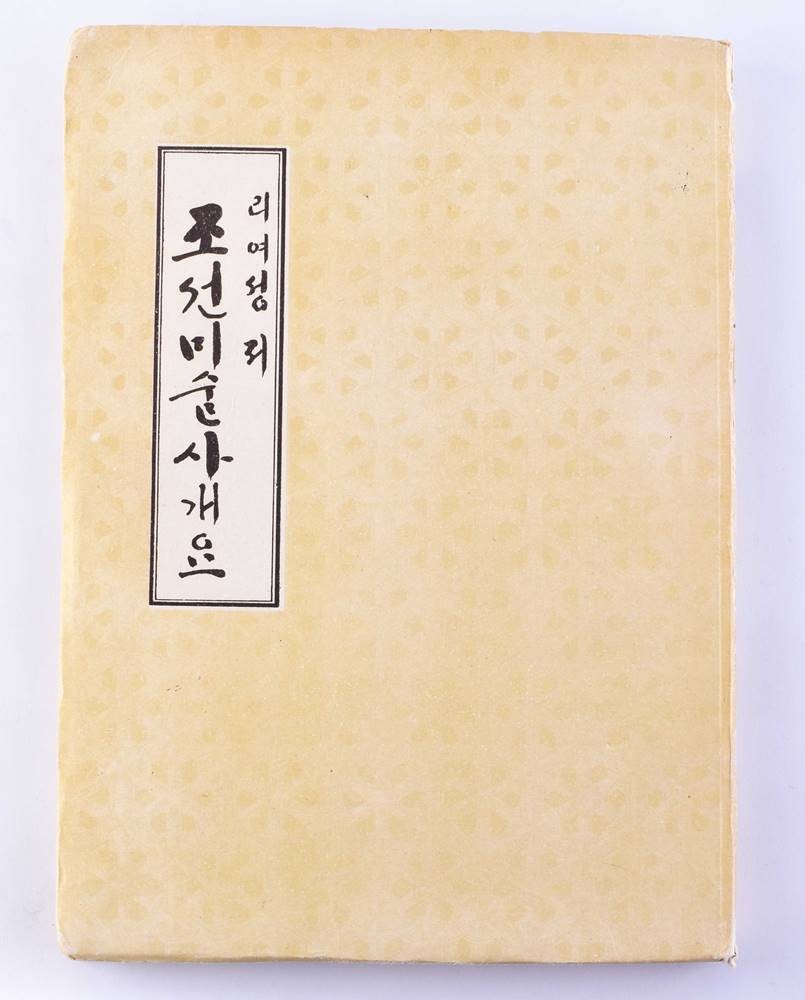 리여성 저
조선미술사개요